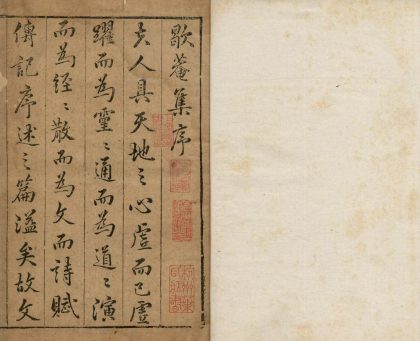 歇菴集序
夫人具天地之心虛而已虛
躍而為靈〻通而為道〻演
而為經〻散而為文而詩賦
傳記序述之篇溢矣故文